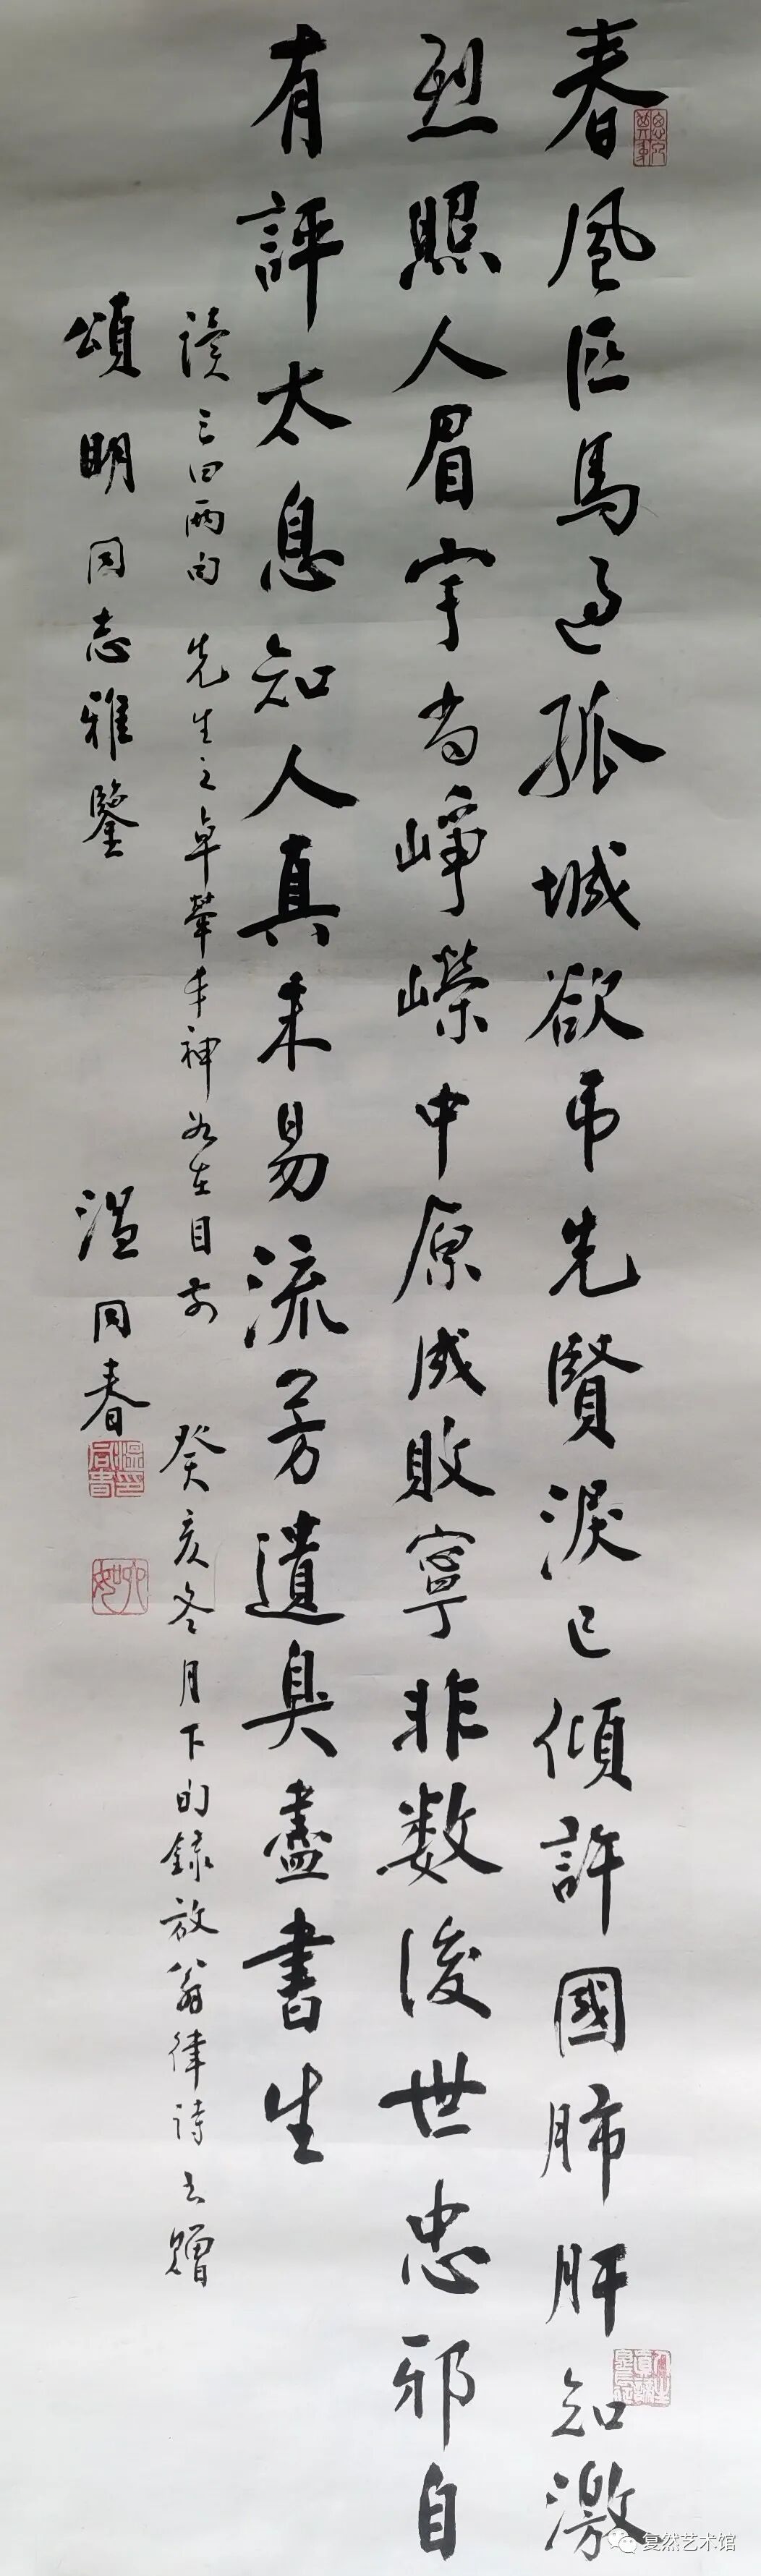 春風匹馬過孤城欲弔先賢淚已傾許國肺肝知激
烈照人眉宇尚崢嶸中原成敗寧非數後世忠邪自
有評太息知人真未易流芳遺臭盡書生
讀三四兩句 先生之卓犖丰神如在目前 癸亥冬月下旬錄放翁律詩書贈
頌明同志雅鑒 溫同春
复然艺术馆